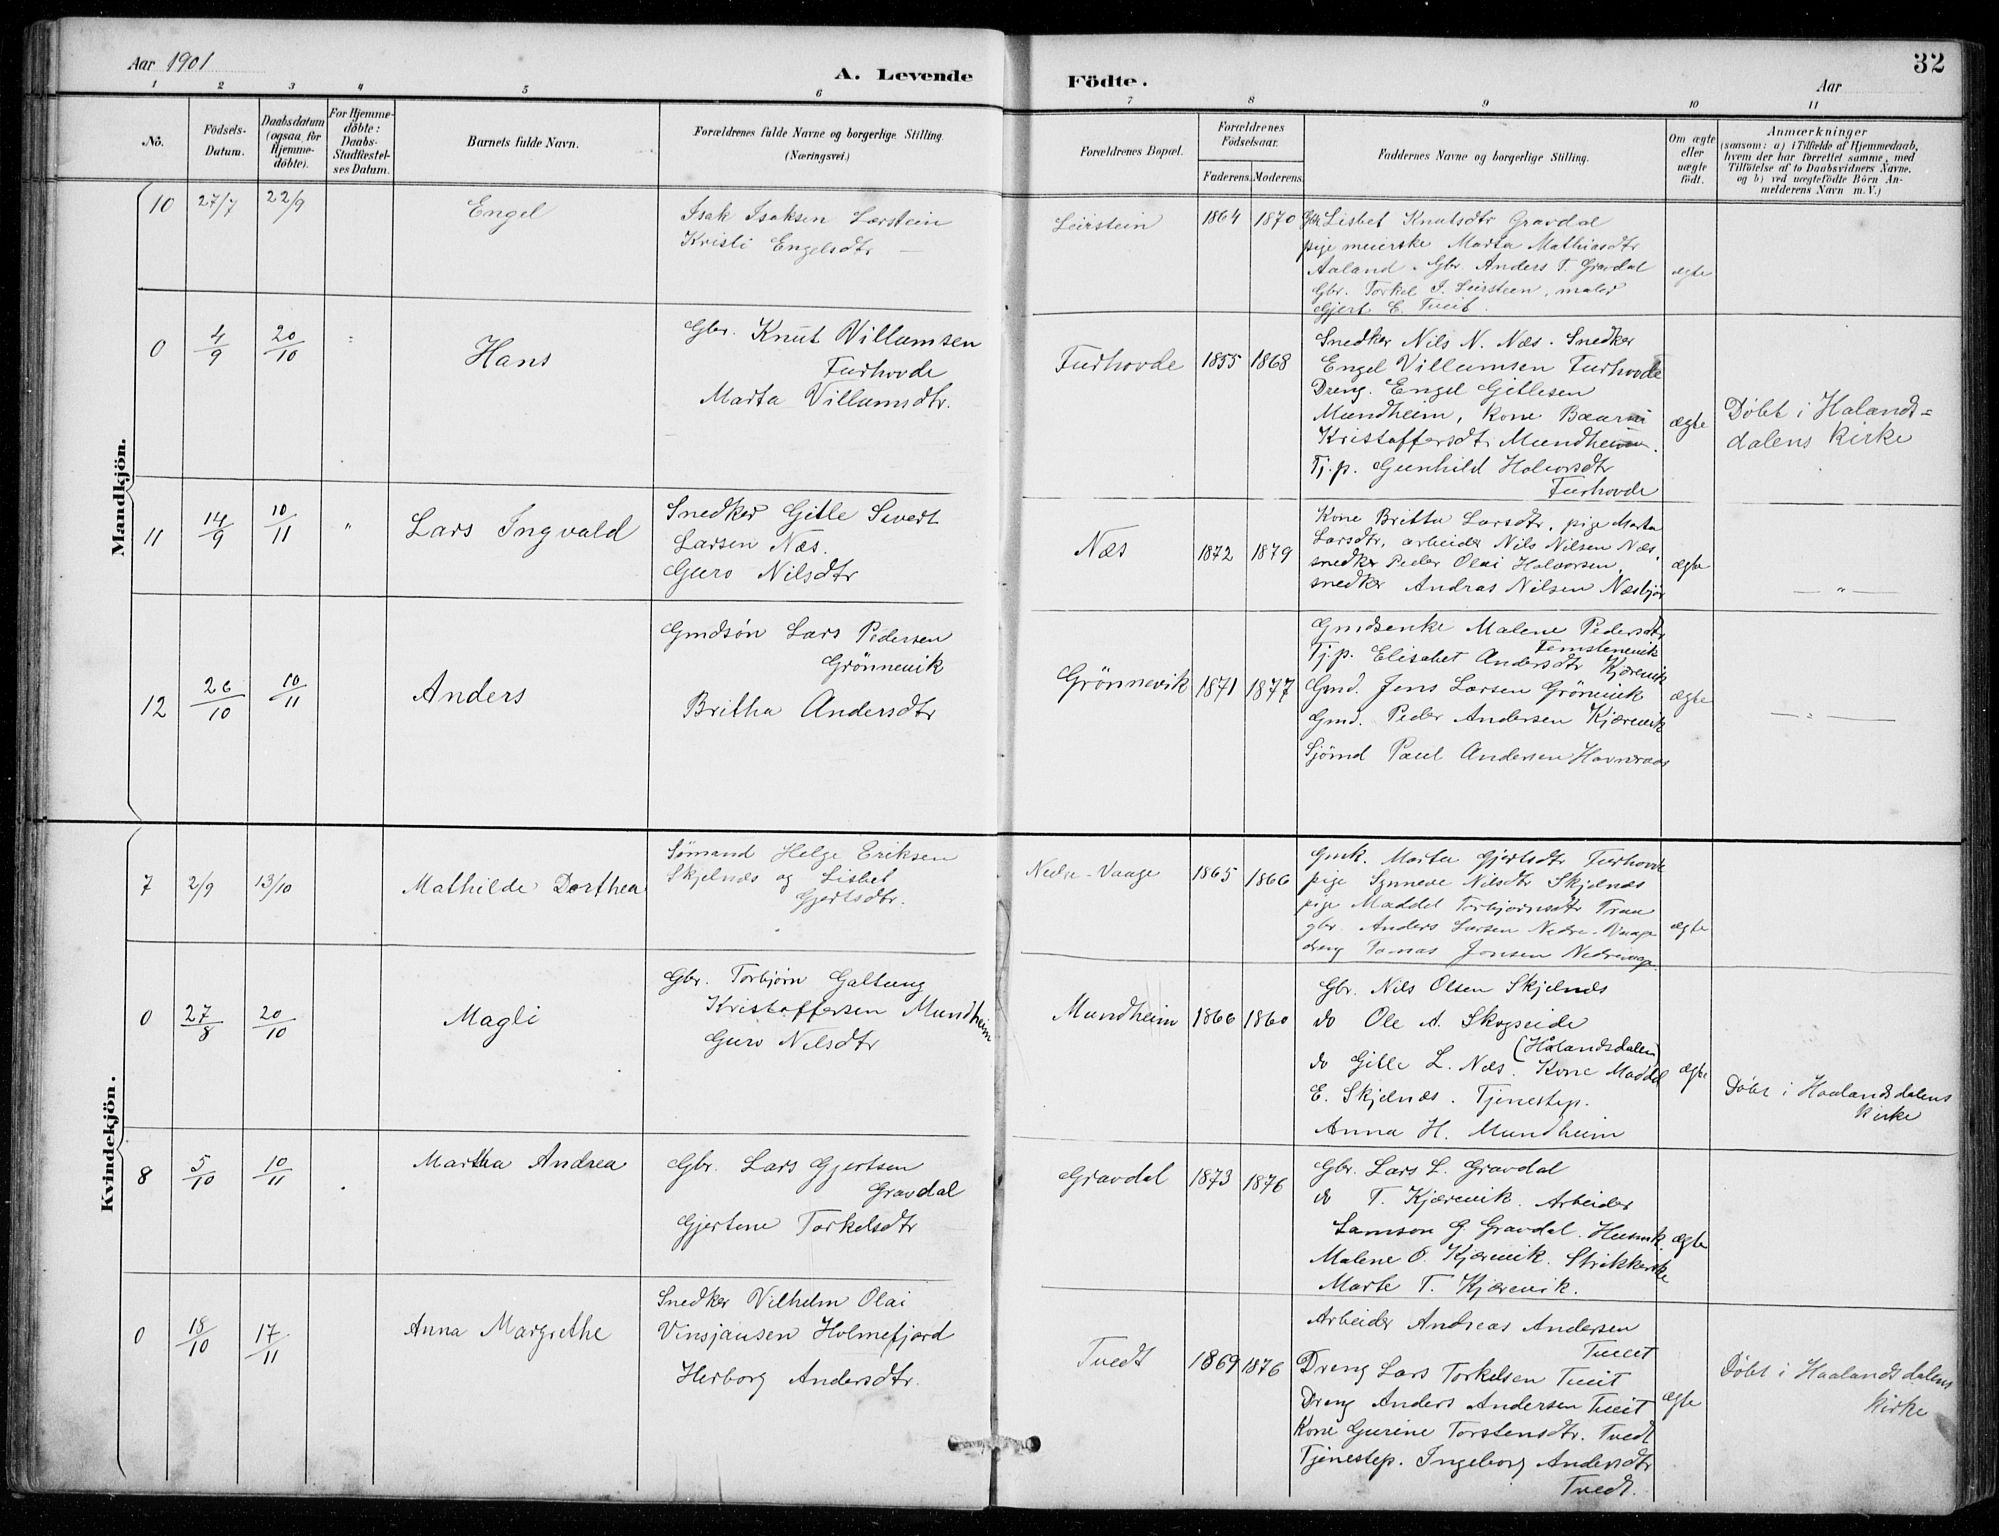 Aar 1901
A. Levende
Födte.
Aar
32
1 2 3 4 5 6 7 8 9 10 11
No.
Födsels-
Datum.
Daabsdatum
(ogsaa for
Hjemme-
döbte).
For Hjemme-
döbte:
Daabs-
Stadfæstel-
ses Datum.
Barnets fulde Navn.
Forældrenes fulde Navne og borgerlige Stilling.
(Næringsvei.)
Forældrenes Bopæl.
Forældrenes
Födselsaar.
Faderens.
Moderens.
Faddernes Navne og borgerlige Stilling.
Om ægte
eller
uægte
födt.
Anmærkninger
(saasom: a) i Tilfælde af Hjemmedaab,
hvem der har forrettet samme, med
Tilföielse af to Daabsvidners Navne.
og b) ved uægtefödte Börn An-
melderens Navn m. V.)
Mandkjön.
10 27/7 22/9
Engel
Isak Isaksen Lærstein
Kristi Engelsdtr —
Leirstein
1864 1870
Gbk Lisbet Knutsdtr Gravdal
pige meierske Marta Mathiasdtr
Aaland. Gbr Anders T. Gravdal
Gbr. Torkel I. Leirsteen, maler
Gjert E. Tveit.
ægte
0 4/9 20/10
Hans
Gbr. Knut Villumsen
Furhovde
Marta Villumsdtr.
Furhovde
1855 1868
Snedker Nils N. Næs. Snedker
Engel Villumsen Furhovde
Dreng. Engel Gitlesen
Mundheim, Kone
Kristoffersdtr Mundheim.
Tj.p. Gunhild Halvorsdtr
Furhovde
ægte
Døbt i Halands=
dalens Kirke
11 14/9 10/11 "
Lars Ingvald
Snedker Gitle Sivert
Larsen Næs.
Guro Nilsdtr
Næs
1872 1879
Kone Britta Larsdtr, pige Marta
Larsdtr, arbeider Nils Nilsen Næs,
snedker Peder Olai Halvorsen,
snedker Andras Nilsen Næsbjør
ægte
— " —
12 26/10 10/11
Anders
Gmdsøn Lars Pedersen
Grönnevik
Britha Andersdtr
Grönnevik
1871 1877
Gmdsenke Malene Pedersdtr
Femstenevik
Tj.p. Elisabet Andersdtr Kjærevik
Gmd. Jens Larsen Grönevik
Gmd. Peder Andersen Kjærevik
Sjömd Paul Andersen
ægte
— " —
Kvindekjön.
7 2/9 13/10
Mathilde Dorthea
Sømand Helge Eriksen
Skjelnæs og Lisbet
Gjertsdtr.
Nedre-Vaage
1865 1866
Gmk. Marta Gjertsdtr Furhovde
pige Synneve Nilsdtr Skjelnæs
pige Maddel Torbjornsdtr Traa
gbr. Anders Larsen Nedre-Vaage
dreng Tomas Jonsen Nedrevaage
ægte
0 27/8 20/10
Magli
Gbr. Torbjørn Galtung
Kristoffersen Mundheim
Guro Nilsdtr
Mundheim
1866 1860
Gbr. Nils Olsen Skjelnæs
do Ole A. Skogseide
(Hålandsdalen)
do Gitle L. Næs. Kone Maddel
E. Skjelnæs. Tjenestep.
Anna H. Mundheim
ægte
Døbt i Haalandsdalens
Kirke
8 5/10 10/11
Martha Andrea
Gbr. Lars Gjertsen
Gravdal
Gjertene Torkelsdtr
Gravdal
1873 1876
Gbr. Lars L. Gravdal
do T. Kjærevik. Arbeider
Samson G. Gravdal. Husmk.
Malene O. Kjærevik. Strikkerske
Marte T. Kjærevik.
ægte
0 18/10 17/11
Anna Margrethe
Snedker Vilhelm Olai
Vinsjansen Holmefjord
Herborg Andersdtr.
Tvedt
1869 1876
Arbeider Andreas Andersen
Tveit
Dreng Lars Torkelsen Tveit
Dreng Anders Andersen Tveit
Kone Gurine Torstensdtr. Tvedt
Tjenestep. Ingeborg Andersdtr
Tvedt.
ægte
Døbt i Haalandsdalens
Kirke